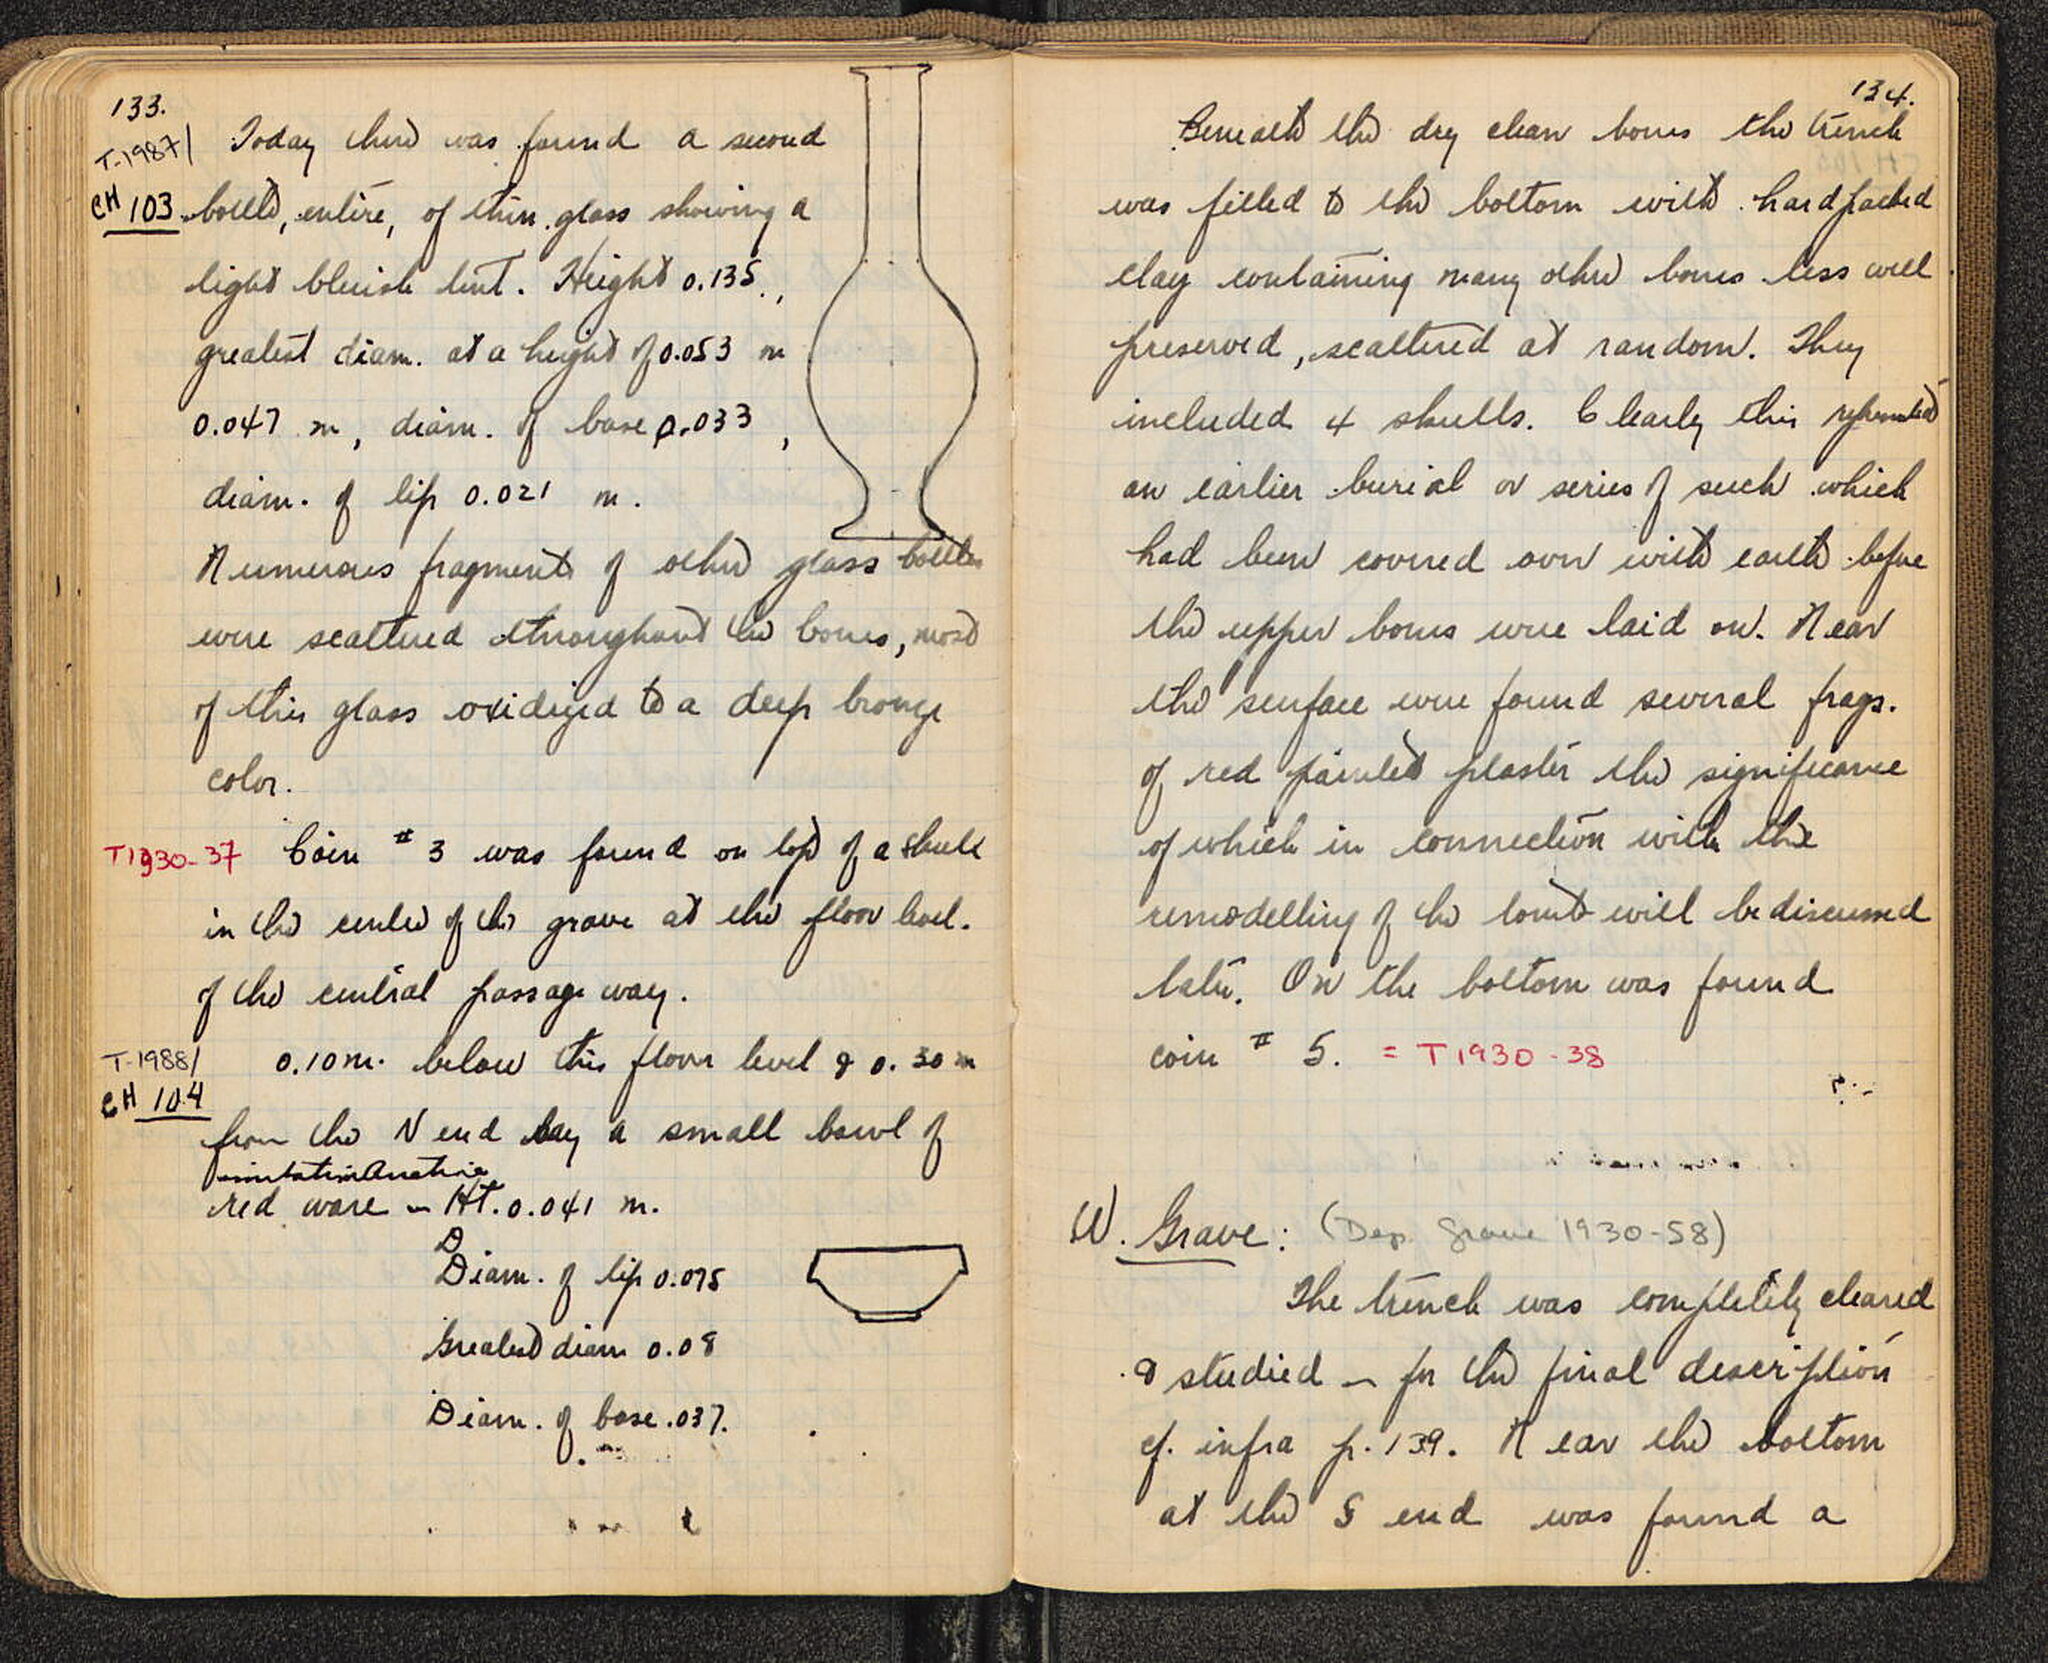 133.
T-1987/ Today there was found a second
CH 103 bottle, entire, of thin glass showing a
light bluish tint. Height 0.135,
greatest diam. at a height of 0.053 m
0.047 m, diam. of base 0.033,
diam. of lip 0.021 m.
Numerous fragments of other glass bottles
were scattered throughout the bones, most
of this glass oxidized to a deep bronze
color.
T1930-37 Coin # 3 was found on top of a skull
in the center of the grave at the floor level.
of the central passage way.
T-1988/ 0.10 m. below this floor level & 0.30 m
CH 104
from the N end lay a small bowl of
imitation Arretine
red ware - Ht. 0.041 m.
D
Diam. of lip 0.075
Greatest diam 0.08
Diam. of base .037.
134.
Beneath the dry clean bones the trench
was filled to the bottom with hard packed
clay containing many other bones less well
preserved, scattered at random. They
included 4 skulls. Clearly this represented
an earlier burial or series of such which
had been covered over with earth before
the upper bones were laid on. Near
the surface were found several frags.
of red painted plaster the significance
of which in connection with the
remodelling of the tomb will be discussed
later. On the bottom was found
coin # 5. = T 1930-38
W. Grave: (Dep. Grave 1930-58)
The trench was completely cleared
& studied - for the final description
cf. infra p. 139. Near the bottom
at the S end was found a